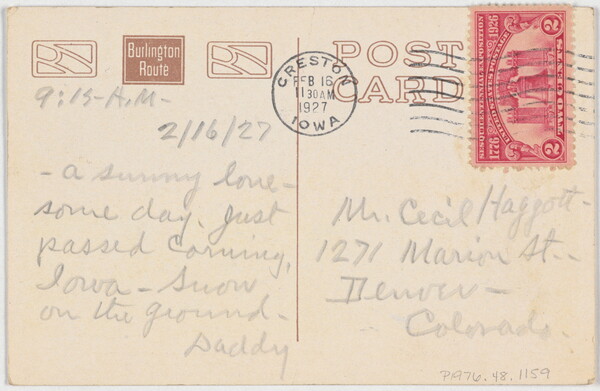 Burlington
Route
POST
CARD
CRESTON
FEB 16
11 30 AM
1927
IOWA
SESQUICENTENNIAL EXPOSITION
1776
1926
2
2
9:15-A.M-
2/16/27
- a sunny lone-
some day. Just
passed Corning,
Iowa - Snow
on the ground-
Daddy
Mr. Cecil Haggott-
1271 Marion St.-
Denver-
Colorado.
PA76.48.1159